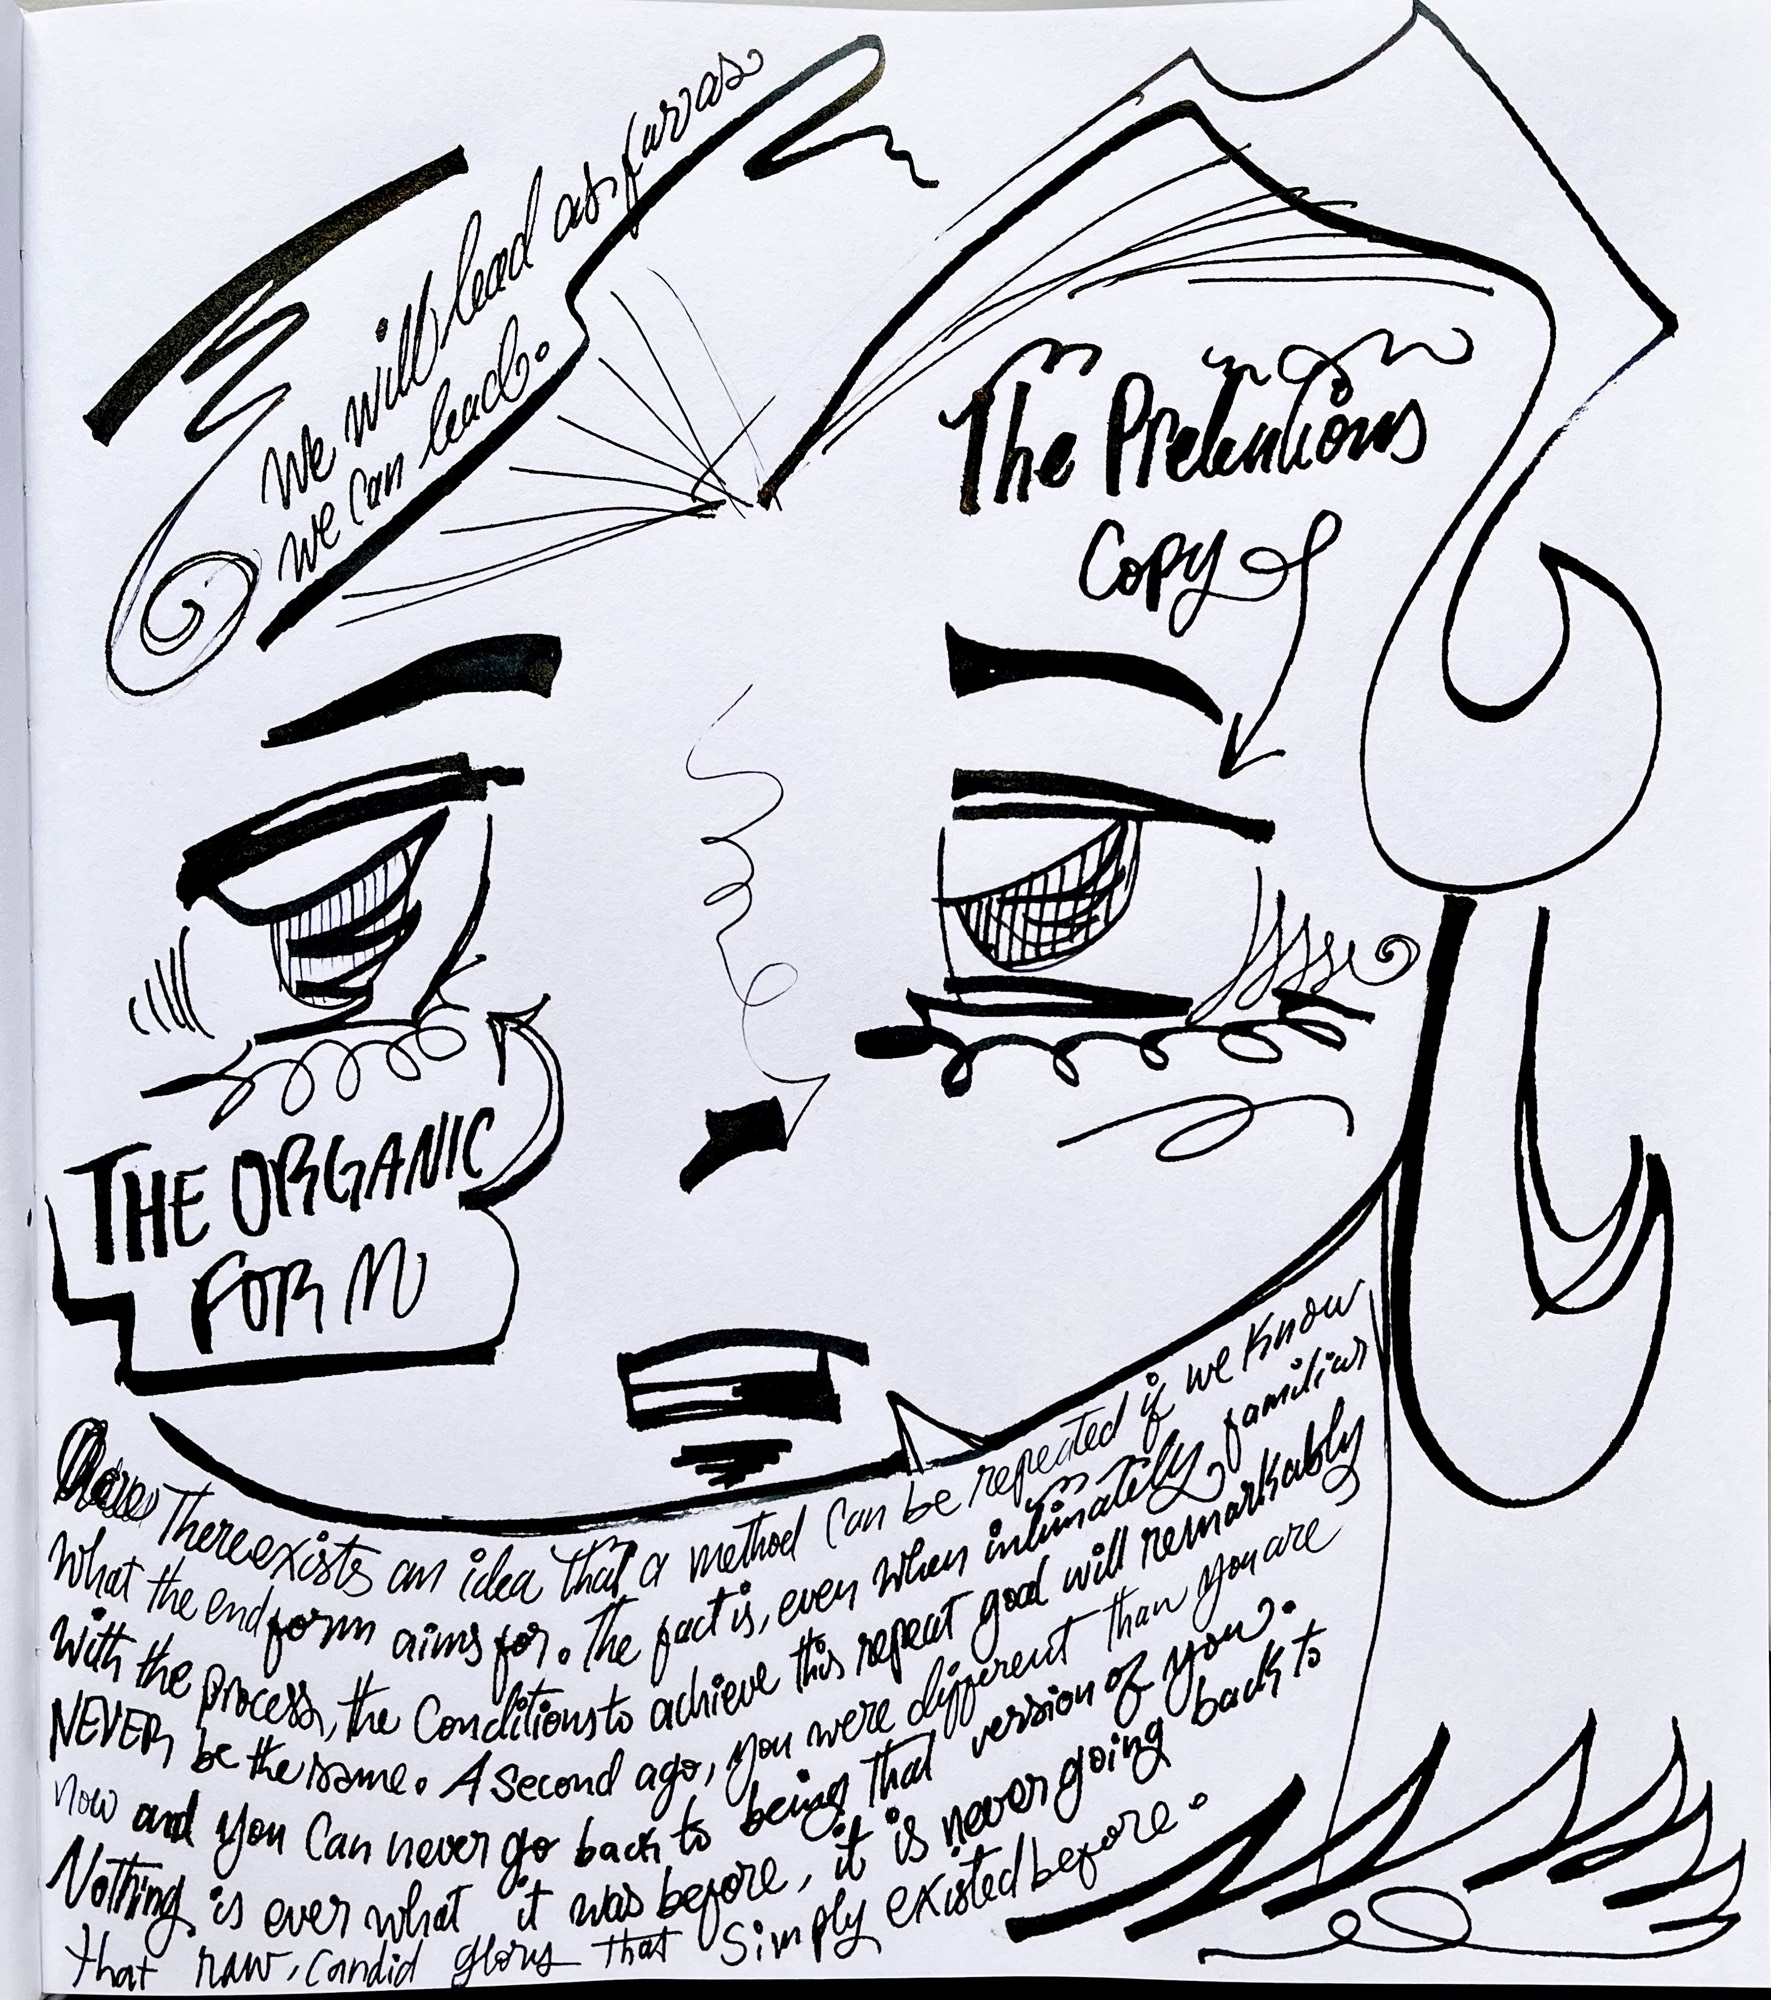 We will lead as far as
we can lead.
The Pretentious
Copy
THE ORGANIC
FORM
There exists an idea that a method can be repeated if we know
what the end form aims for. The fact is, even when intimately familiar
with the process, the conditions to achieve this repeat goal will remarkably
NEVER be the same. A second ago, you were different than you are
now and you can never go back to being that version of you.
Nothing is ever what it was before, it is never going back to
that raw, candid glory that simply existed before.